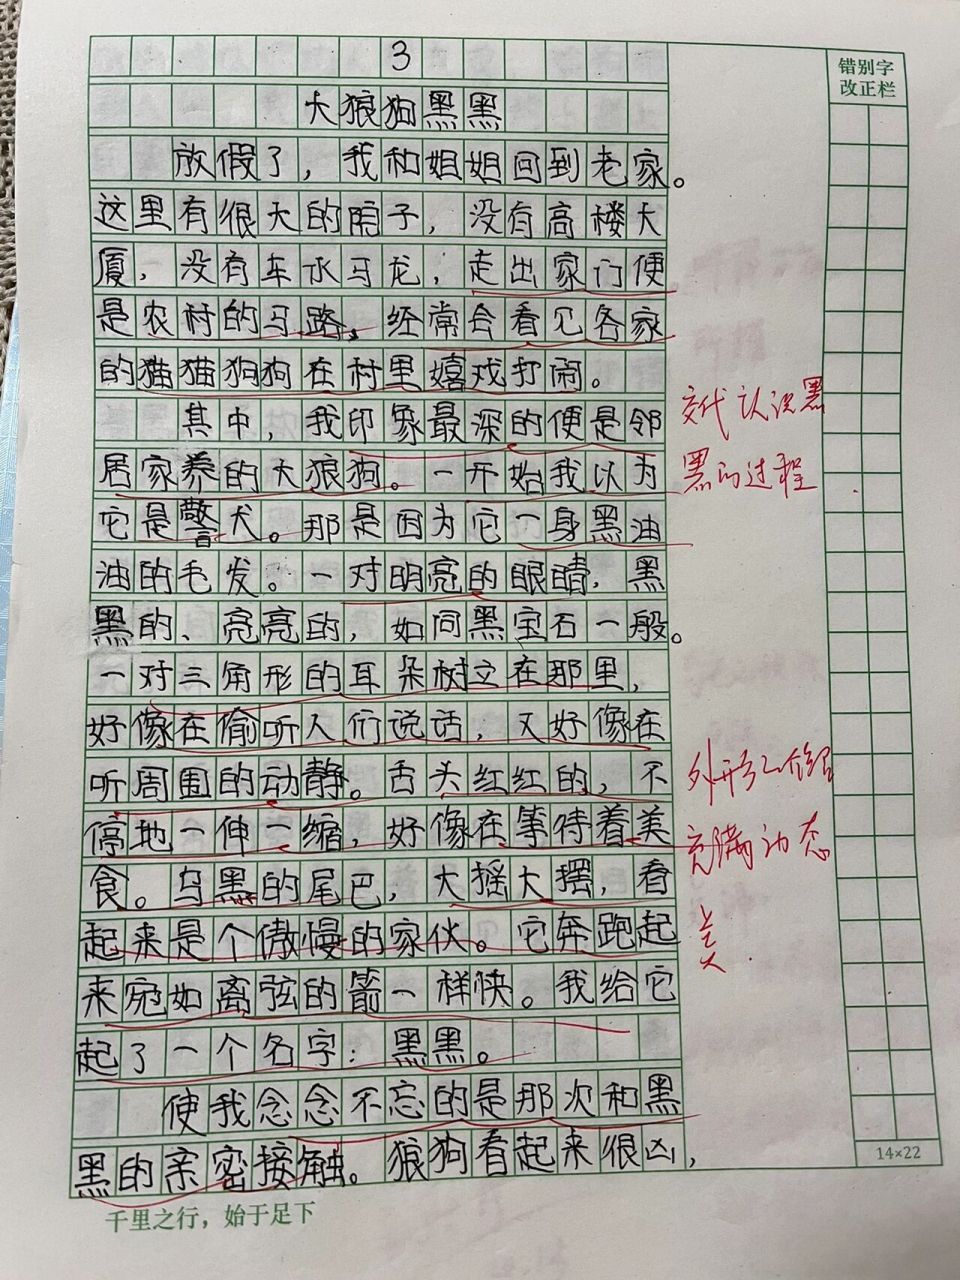 3
大狼狗黑黑
放假了，我和姐姐回到老家。
这里有很大的院子，没有高楼大
厦，没有车水马龙，走出家门便
是农村的马路，经常会看见各家
的猫猫狗狗在村里嬉戏打闹。
其中，我印象最深的便是邻
居家养的大狼狗。一开始我以为
它是警犬。那是因为它一身黑油
油的毛发。一对明亮的眼睛，黑
黑的、亮亮的，如同黑宝石一般。
一对三角形的耳朵树立在那里，
好像在偷听人们说话，又好像在
听周围的动静。舌头红红的，不
停地一伸一缩，好像在等待着美
食。乌黑的尾巴，大摇大摆，看
起来是个傲慢的家伙。它奔跑起
来宛如离弦的箭一样快。我给它
起了一个名字：黑黑。
使我念念不忘的是那次和黑
黑的亲密接触。狼狗看起来很凶，
错别字
改正栏
交代认识黑
黑的过程
外形介绍
充满动态
美.
14×22
千里之行，始于足下